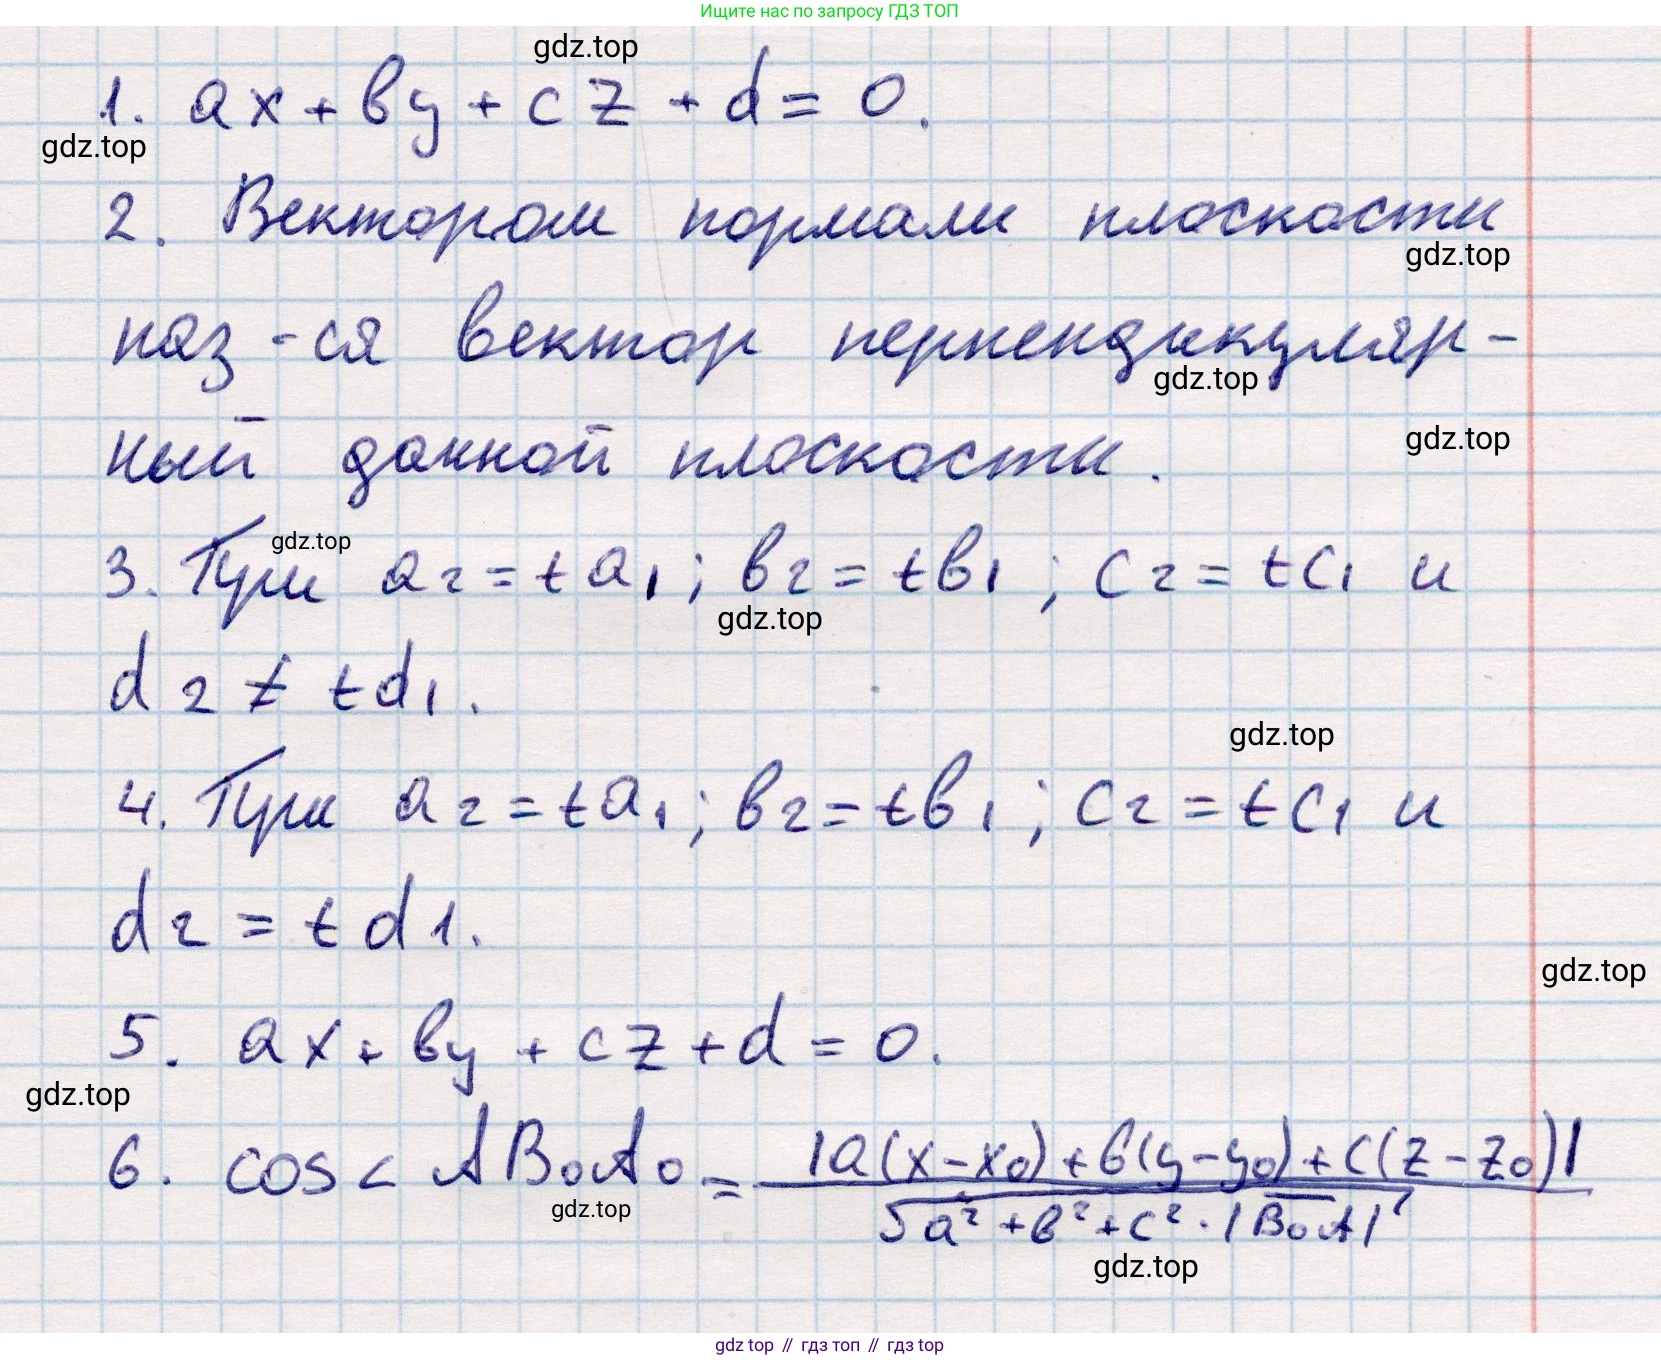 Ищите нас по запросу ГДЗ ТОП
gdz.top
1. ax + by + cz + d = 0.
gdz.top
2. Вектором нормали плоскости
gdz.top
наз-ся вектор перпендикуляр-
gdz.top
ный данной плоскости.
gdz.top
gdz.top
3. При a2 = ta1; b2 = tb1; c2 = tc1 и
gdz.top
d2 ≠ td1.
gdz.top
4. При a2 = ta1; b2 = tb1; c2 = tc1 и
d2 = td1.
gdz.top
5. ax + by + cz + d = 0.
gdz.top
6. cos < AB₀A₀ = |a(x-x₀)+b(y-y₀)+c(z-z₀)| / √a²+b²+c² · |B₀A|
gdz.top
gdz.top
gdz top // гдз топ // гдз top